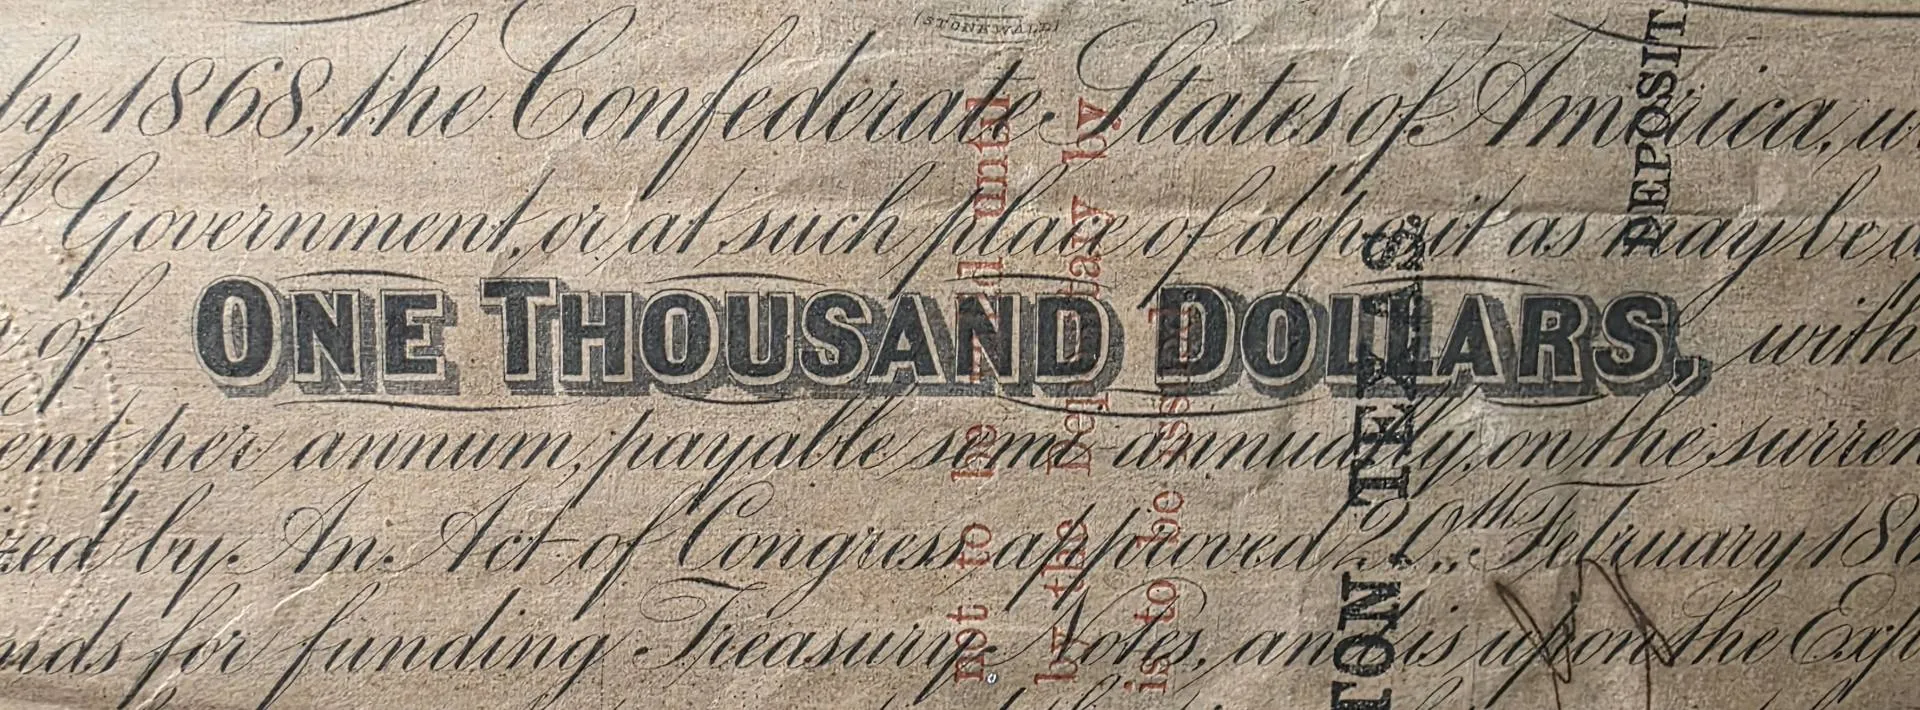 (STONEWALL)
ly 1868, the Confederate States of America, w
Government, or at such place of deposit as may be d
of ONE THOUSAND DOLLARS, with
ent per annum, payable semi annually, on the surren
zed by An Act of Congress, approved 20th February 186
nds for funding Treasury Notes, and is upon the Exp
not to be
by the Dep
is to be issued
until
ary by
TON, TEXAS.
DEPOSIT